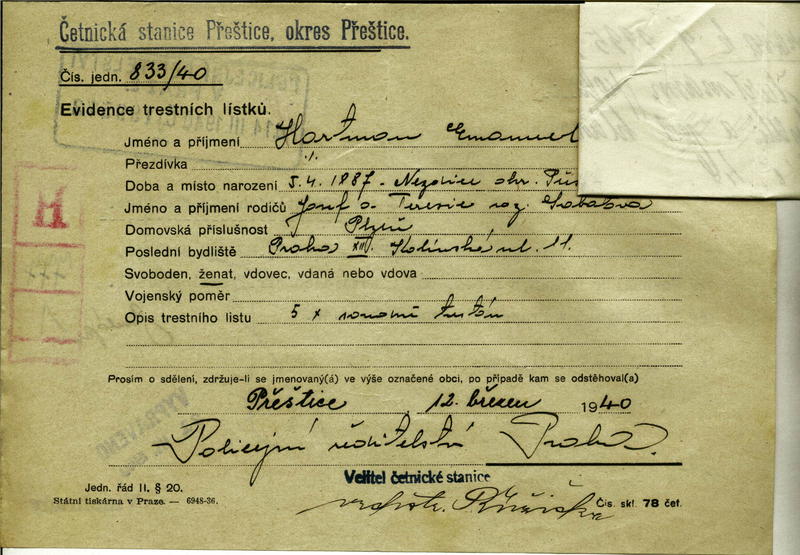 Četnická stanice Přeštice, okres Přeštice.
Čís. jedn. 833/40
Evidence trestních lístků.
Jméno a příjmení Hartman Emanuel
Přezdívka
Doba a místo narození 5.4. 1887 - Nezdice okr.
Jméno a příjmení rodičů Josef a Terezie roz.
Domovská příslušnost Plzeň
Poslední bydliště Praha XIII. Kolínská ul. 11.
Svoboden, ženat, vdovec, vdaná nebo vdova
Vojenský poměr
Opis trestního listu 5 x trestán
Prosím o sdělení, zdržuje-li se jmenovaný(á) ve výše označené obci, po případě kam se odstěhoval(a)
Přeštice 12. březen 1940
Policejní ředitelství Praha.
Velitel četnické stanice
Jedn. řád II. § 20.
Státní tiskárna v Praze. — 6948-36.
Čís. skl. 78 čet.
M